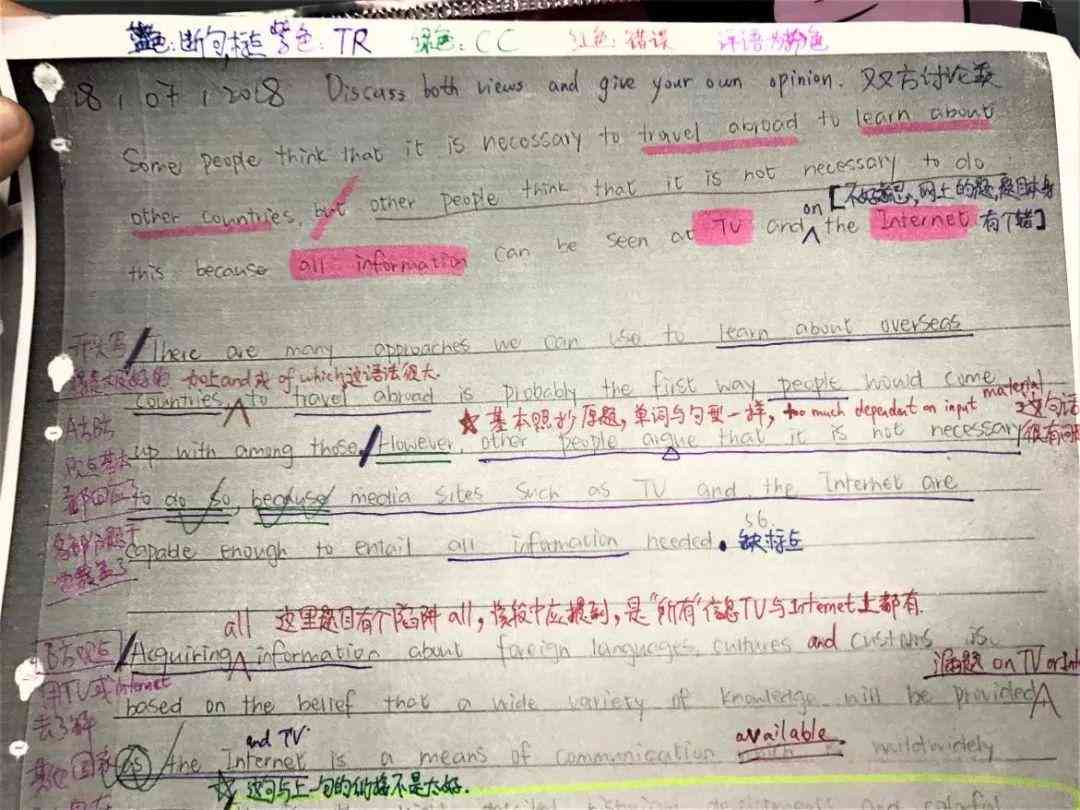 蓝色:断句,标点 紫色:TR 绿色:CC 红色:错误 评语为粉色
28 / 07 / 2018 Discuss both views and give your own opinion. 双方讨论类
Some people think that it is necessary to travel abroad to learn about
other countries, but other people think that it is not necessary to do
on [不好意思,网上的题,题目本身
this because all information can be seen at TV and the Internet 有个错]
开头写 There are many approaches we can use to learn about overseas
加上and或of which这语法很大
countries to travel abroad is probably the first way people would come
基本照抄原题,单词与句型一样, too much dependent on input material
up with among those However, other people argue that it is not necessary
to do so, because media sites such as TV and the Internet are
56
capable enough to entail all information needed. 缺标点
all 这里题目有个陷阱all,该段中应提到,是"所有"信息TV与Internet上都有.
B方观点 Acquiring information about foreign languages, cultures and customs is
漏题 on TV or
用TV或Internet based on the belief that a wide variety of knowledge will be provided
去了解
and TV available
其他国家 as the Internet is a means of communication
这句与上一句的衔接不是太好.